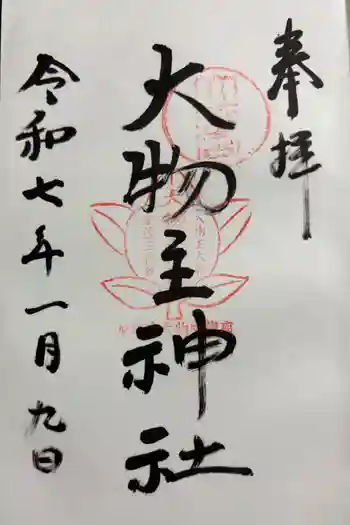 奉拝
大物主神社
令和七年一月九日